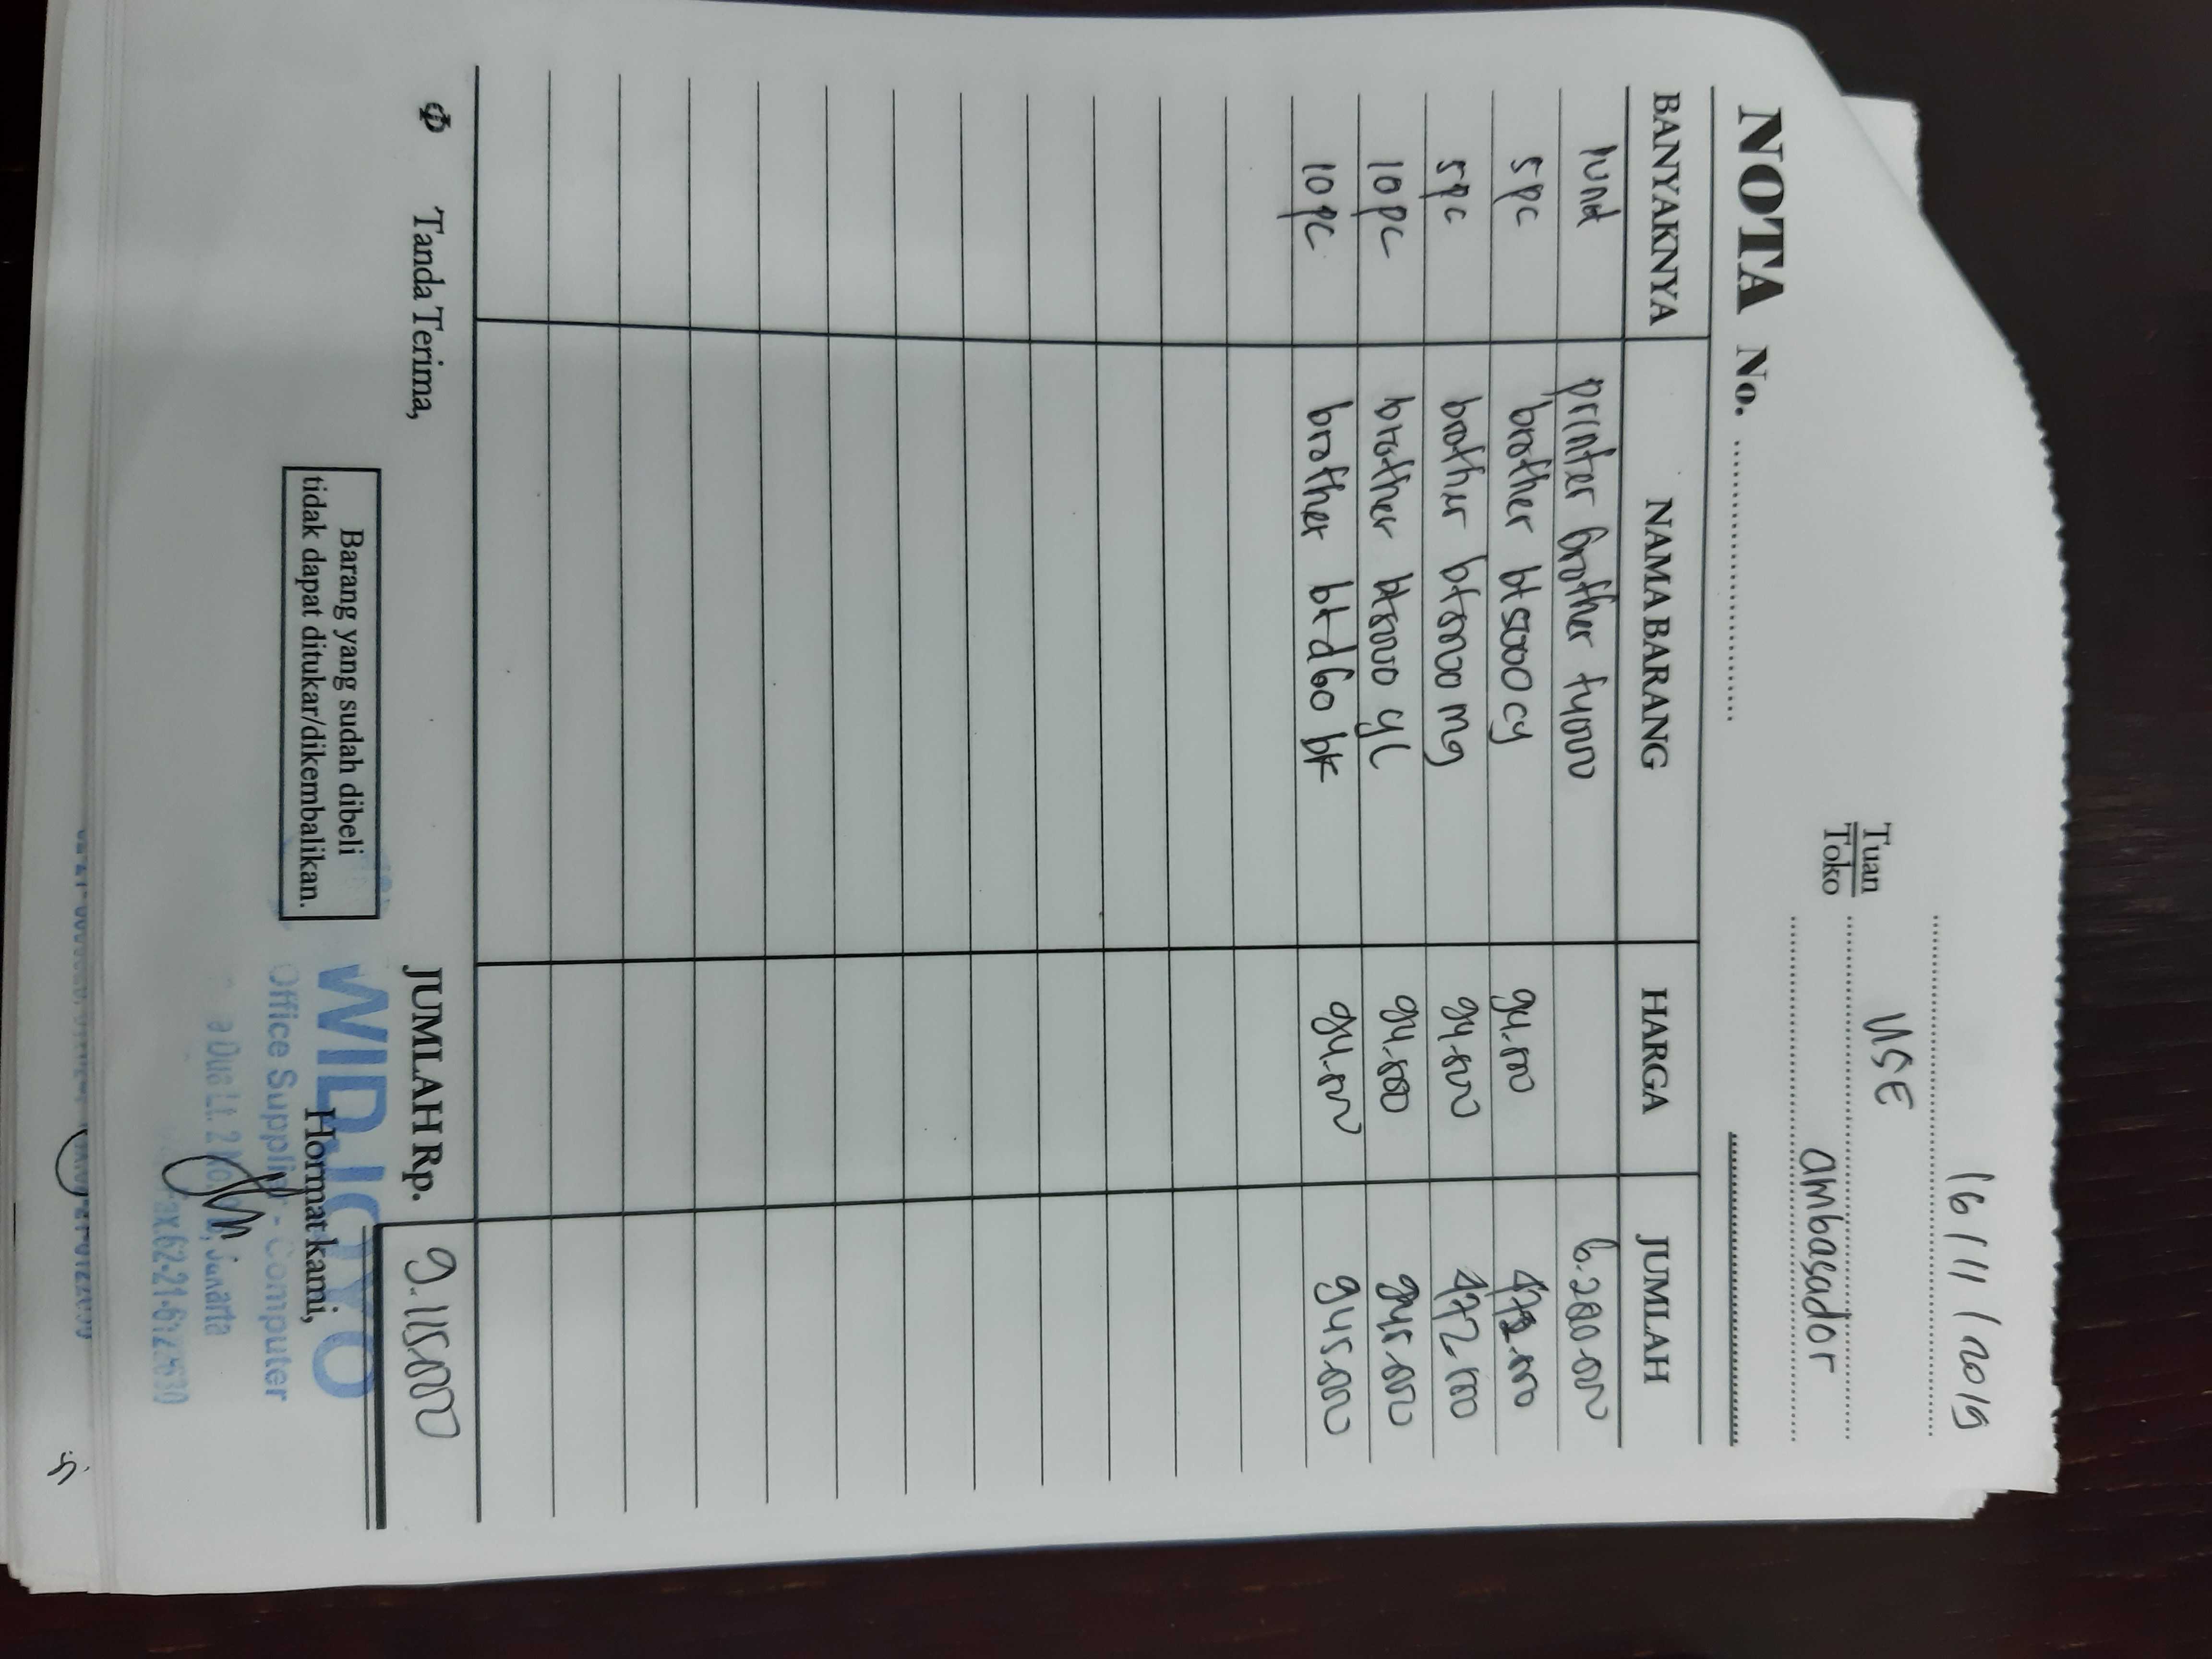 16/11/2019
Tuan
Toko
USE
ambasador
NOTA No.
BANYAKNYA NAMA BARANG HARGA JUMLAH
1 unit printer brother t4000 6.280.000
5 pc brother bt5000 cy 94.500 472.500
5 pc brother bt5000 mg 94.500 472.500
10 pc brother bt5000 yl 94.500 945.000
10 pc brother btd60 bk 94.500 945.000
JUMLAH Rp. 9.115.000
Tanda Terima,
Barang yang sudah dibeli
tidak dapat ditukar/dikembalikan.
Hormat kami,
Office Supplier - Computer
Dua Lt. 2 No. Jakarta